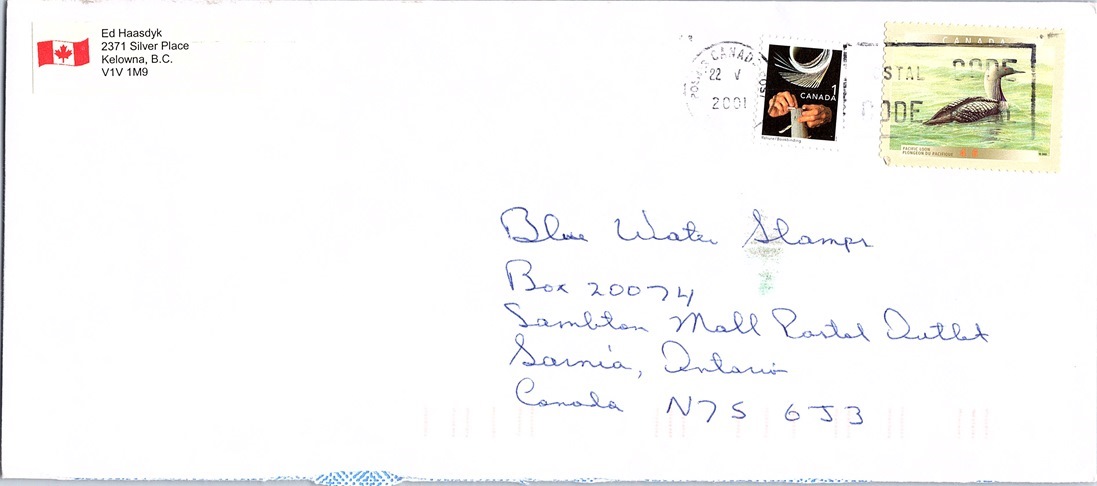 Ed Haasdyk
2371 Silver Place
Kelowna, B.C.
V1V 1M9
CANADA
22 V
2001
POSTAL CODE
CODE
1
CANADA
Reliure/Bookbinding
CANADA
PACIFIC LOON
PLONGEON DU PACIFIQUE
Blue Water Stamps
Box 20074
Lambton Mall Postal Outlet
Sarnia, Ontario
Canada N7S 6J3